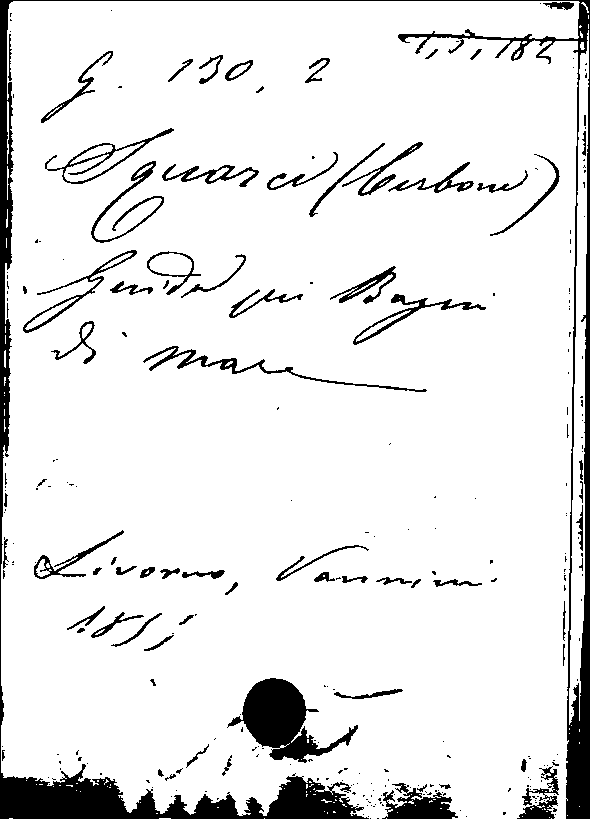 1,3,182
G. 130, 2
Squarci (Cerbone)
Guida pei Bagni
di mare
Livorno, Vannini